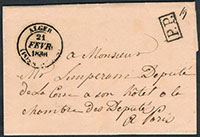 ALGER
21
FEVR.
1838
P.P.
a Monsieur
Mr Limperani Député
de la Corse a son hotel a la
chambre des Députés
a Paris